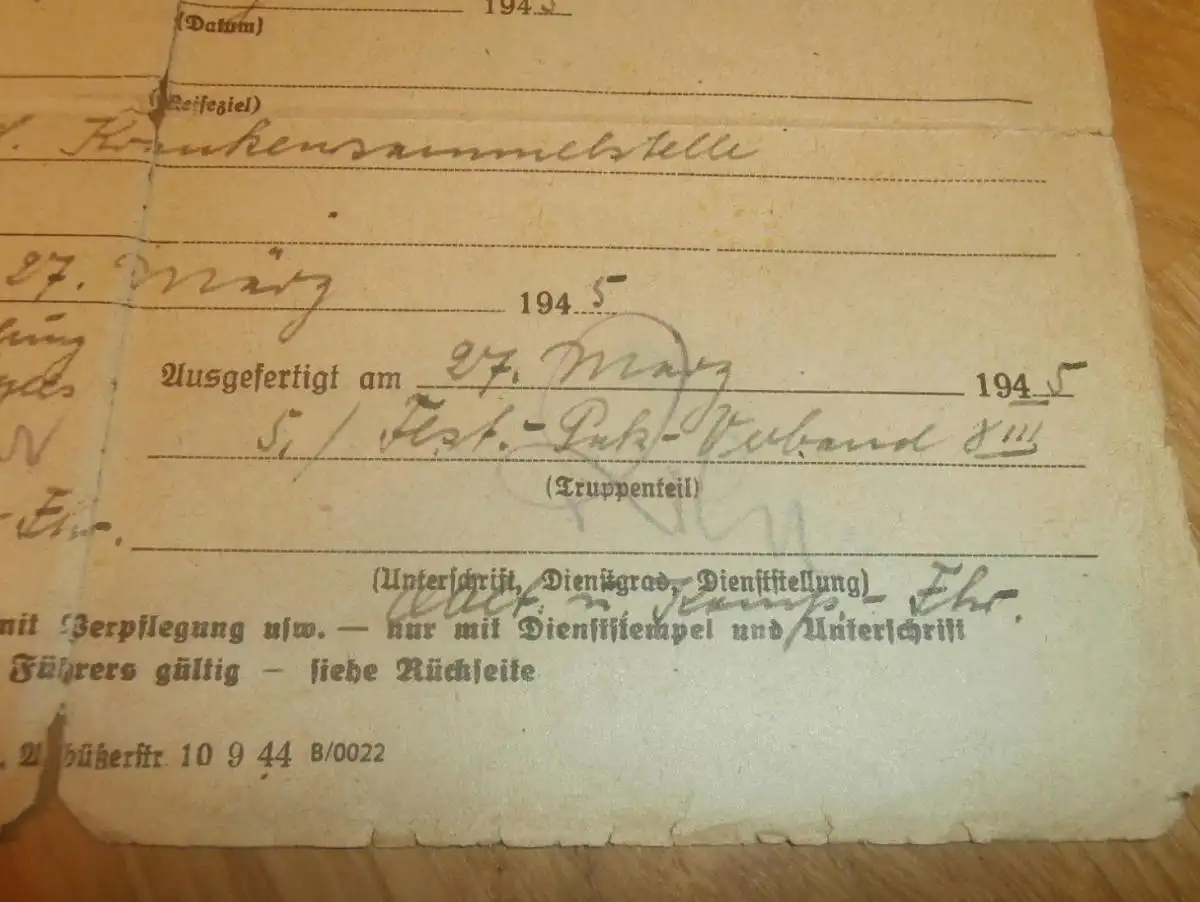 1945
(Datum)
(Reiseziel)
Krankensammelstelle
27. März 1945
Ausgefertigt am 27. März 1945
5./ Fest.-Pak-Verband XIII
(Truppenteil)
Fhr.
(Unterschrift, Dienstgrad, Dienststellung)
u. Komp.-Fhr.
mit Verpflegung usw. — nur mit Dienststempel und Unterschrift
Führers gültig — siehe Rückseite
10 9 44 B/0022